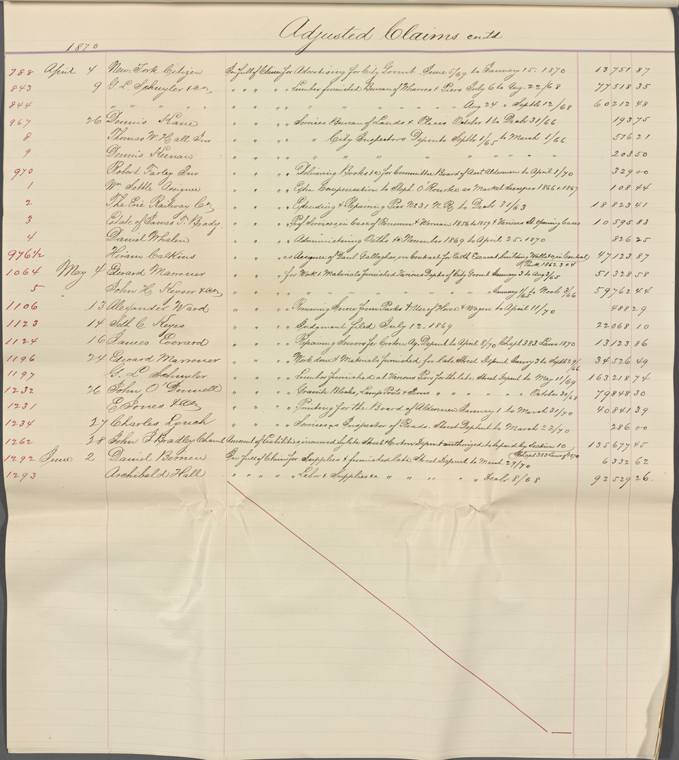 Adjusted Claims contd
1870
788 April 4 New York Citizen In full of Claim for Advertising for City Govmt June 7/69 to January 15. 1870 13751 87
843 9 G L Schuyler & Co " " " " Lumber furnished Bureau of Wharves & Piers July 6 to Aug 22/68 77518 35
844 " " " " " " " " Aug 24 " Septr 12/68 60212 48
967 26 Dennis Kane " " " " Services Bureau of Lands & Places to Decr 31/66 193 75
8 Thomas W Hall " " " " " City Inspectors Deptmt Septr 1/65 to March 1/66 516 21
9 Dennis Keenan " " " " " " " " " " 203 50
970 Robert Farley " " " " Delivering Books &c for Committee Board of Asst Aldermen to April 1/70 329 00
1 Wm Settle Assignee " " " " Extra Compensation to Steph. O'Rourke as Market Sweeper 1866 & 1867 108 44
2 The Erie Railway Co " " " " Extending & Repairing Pier No 31 N. R. to Decr 31/63 18823 41
3 Estate of James T. Brady " " " " Prof Services in Case of & 1856 to 1859 & Various St. Opening Cases 10595 83
4 Daniel Whalen " " " " Administering Oaths to November 1869 to April 25. 1870 826 25
976½ Hiram Calkins " " " as Assignee of Daniel Gallagher, on Contract for Earth 47123 87
1064 May 4 Gerard Mancur " " " for Work & Materials furnished Various Depts of City Govmt January 3 to Aug 3/65 51328 58
5 John H Keyser & Co " " " " " " " " January 1/65 to Novbr 3/66 59762 44
1106 13 Alexander Ward " " " " Removing Snow from Parks & Use of Horse & Wagon to April 11/70 488 29
1123 14 Seth C Keyes " " " " Judgment filed July 12. 1869 22068 10
1124 16 James Everard " " " " Repairing Sewers for Croton Aq. Deptmt to April 9/70 Chap 383 Laws 1870 13123 86
1196 24 Gerard Mancur " " " " Work done & Materials furnished for late Street Deptmt Jany 3 to Septr 29/66 34526 49
1197 G. L Schuyler " " " " Lumber furnished at Various Piers for the late Street Deptmt to May 11/69 163218 74
1232 26 John O'Donnell " " " " Granite Blocks, Lamp Posts & " " " " " October 31/68 79848 30
1231 E Jones & Co " " " " Printing for the Board of Aldermen January 1 to March 31/70 40841 39
1234 27 Charles Lynch " " " " Services as Inspector of Roads. Street Deptmt to March 23/70 286 00
1262 28 John J Bradley Chamn Amount of liabilities incurred by late Street & Croton Deptmt & authorized to be paid by Section 10 Chapt 383 Laws of 1870 135677 45
1292 June 2 Daniel In full of Claim for Supplies & furnished late Street Deptmt to March 29/70 6332 62
1293 Archibald Hall " " " " Labor & Supplies " " " " " Decbr 8/68 92529 26